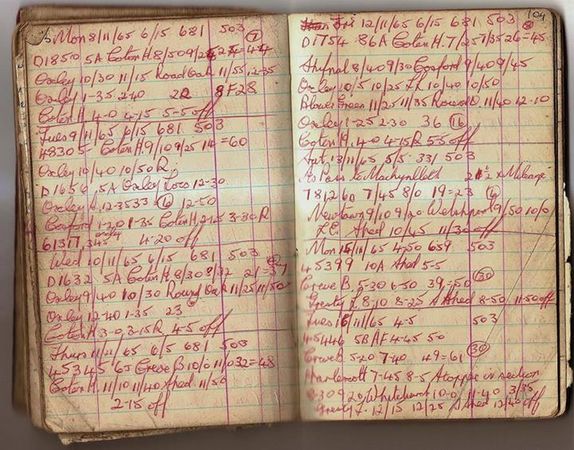 Mon 8/11/65 6/15 681 503 7
D1850 5A Coton H. 8/50 9/24 =44
Oxley 10/30 11/15 Round Oak 11/55 12-35
Oxley 1-35 2-40 2R 8F28
Coton H 4-0 4-15 5-5 off
Tues 9/11/65 6/15 681 503
48305 Coton H 9/10 9/25 14=60
Oxley 10/40 10/50 R
D1656 5A Oxley 12-30
Oxley A. 12-35 33 12-50
Cosford 1-20 1-35 Coton H 2-25 3-30R
61317 4-20 off
Wed 10/11/65 6/15 681 503
D1632 5A Coton H 8/30 8/32 21=37
Oxley 9/40 10/30 Round Oak 11/25 11/50
Oxley 12-40 1-35 23
Coton H. 3-0 3-15R 4-5 off
Thurs 11/11/65 6/5 681 503
45345 67 Crewe B 10/0 11/0 32=48
Coton H 11/10 11/40 Shed 11/50
2-15 off
104
Fri 12/11/65 6/15 681 503
D1754 86A Coton H. 7/25 7/35 26=45
Shifnal 8/40 9/30 Cosford 9/40 9/45
Oxley 10/5 10/25 10/40 10/50
Blowers Green 11/25 11/35 Round O 11/40 12-10
Oxley 1-25 2-30 36 16
Coton H. 4-0 4-15R 5-5 off
Sat. 13/11/65 5/5 331 503
As Pass to Machynlleth 2 Hrs Mileage
78 12 60 7/45 8/0 19=23
Newtown 9/10 9/20 Welshpool 9/50 10/0
Shed 10/45 11/30 off
Mon 15/11/65 4-50 659 503
45399 10A Shed 5-5
Crewe B. 5-30 6-50 39=50 30
Gresty L 8-10 8-25 Shed 8-50 11-50 off
Tues 16/11/65 4-5 503
45446 5B AF 4-45 50
Crewe B 5-20 7-40 49=61 30
Harlescott 7-45 8-5 Stopped in section
8-30 9-20 Whitchurch 10-0 11-40
Gresty L. 12/15 12/25 Shed 12/40 off